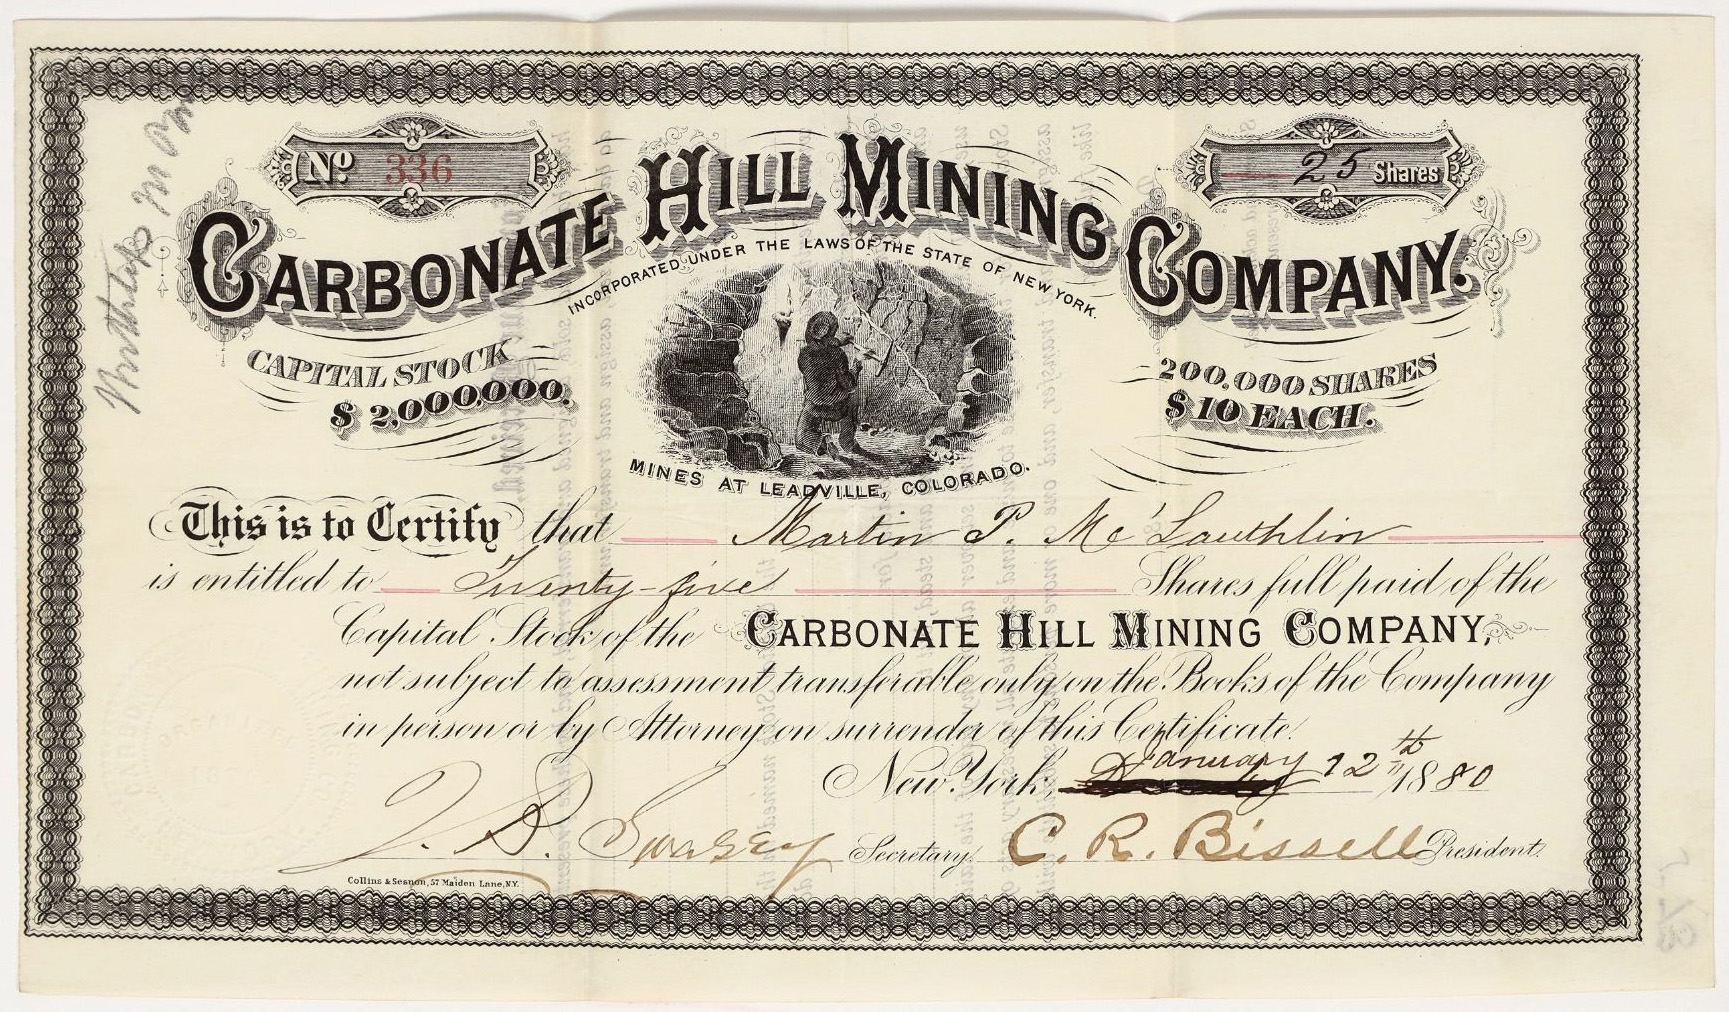 No. 336
25 Shares
CARBONATE HILL MINING COMPANY.
INCORPORATED UNDER THE LAWS OF THE STATE OF NEW YORK.
CAPITAL STOCK
$2,000,000.
200,000 SHARES
$10 EACH.
MINES AT LEADVILLE, COLORADO.
This is to Certify that Martin P. Mc'Lauthlin
is entitled to Twenty-five Shares full paid of the
Capital Stock of the CARBONATE HILL MINING COMPANY,
not subject to assessment transferable only on the Books of the Company
in person or by Attorney on surrender of this Certificate.
New York, January 12th 1880
J. D. Swasey Secretary. C. R. Bissell President.
Collins & Sesnon, 57 Maiden Lane, N.Y.